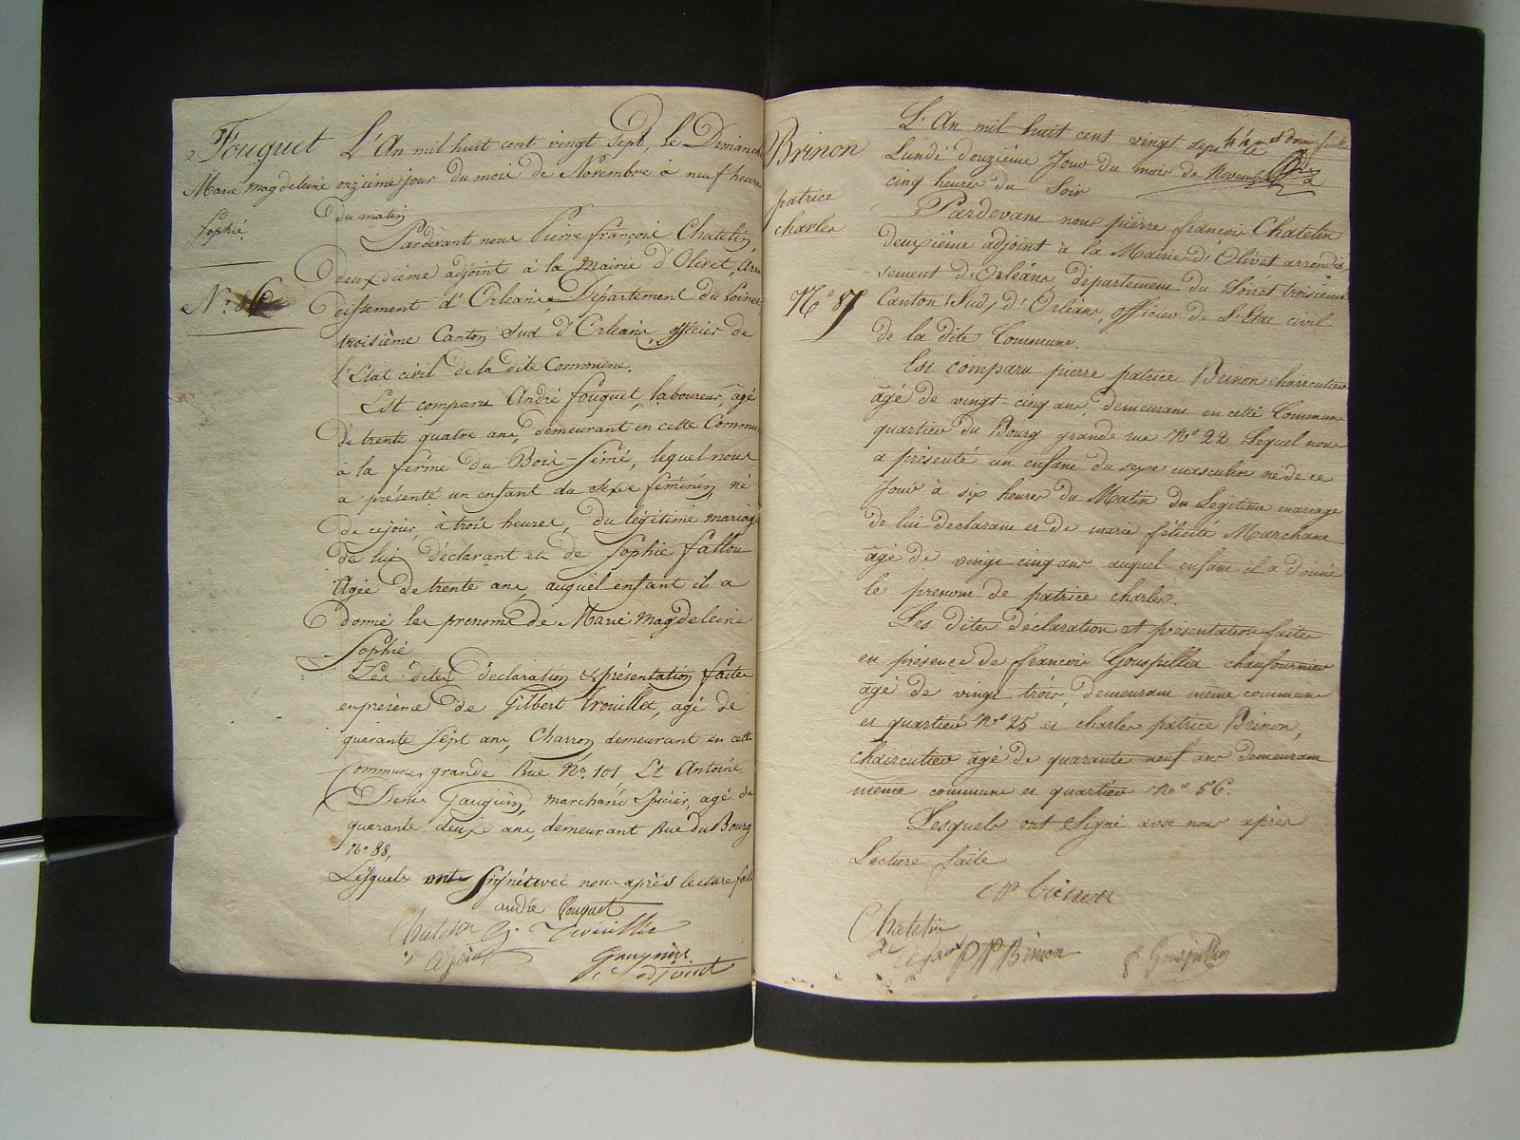 Fouquet
Marie magdeleine
Sophie
N.° 86
L'An mil huit cent vingt sept, le Dimanche
onzième jour du mois de Novembre à neuf heures
du matin
Pardevant nous Pierre françois Chatelin
Deuxdième adjoint à la Mairie d'Olivet, Arron
dissement d'Orleans, Département du Loiret
troisième Canton Sud d'Orleans, officier de
l'Etat civil de la dite Commune.
Est comparu André fouquet, laboureur, âgé
de trente quatre ans, demeurant en cette Commune
à la ferme du Bois-semé, lequel nous
a présenté un enfant du sexe féminin, né
de ce jour, à trois heures, du légitime mariage
de lui déclarant et de Sophie fallou
Agée de trente ans, auquel enfant il a
donné les prenoms de Marie magdeleine
Sophie
Les dites déclaration & présentation faites
en présence de Gilbert trouillet, agé de
quarante sept ans, Charron demeurant en cette
Commune, grande Rue N.° 101 Et Antoine
Denis Gauguin, marchand Epicier, agé de
quarante deux ans, demeurant Rue du Bourg
N° 88,
Lesquels ont signés avec nous après lecture faite
andré fouquet
Chatelin G. Trouillet
adjoint
Brinon
patrice
charles
N° 87
L'An mil huit cent vingt sept
Lundi douzième Jour du mois de Novembre à
cinq heures du Soir
Pardevant nous pierre francois Chatelin
deuxième adjoint à la Mairie d'Olivet arrondis
sement d'Orléans, département du Loiret troisième
Canton (Sud) d'Orléans, officier de l'Etat civil
de la dite Commune.
Est comparu pierre patrice Brinon chaircutier
âgé de vingt cinq ans, demeurant en cette Commune
quartier du Bourg grande rue N° 22 Lequel nous
a présenté un enfant du sexe masculin né de ce
Jour à six heures du Matin du Légitime mariage
de lui declarant et de marie félicité Marchant
âgé de vingt cinq ans auquel enfant il a donné
le prenoms de patrice charles.
Les dites declaration et presentation faites
en présence de francois Gouspillier chaufournier
âgé de vingt trois, demeurant même commune
et quartier N° 25 et charles patrice Brinon,
chaircutier âgé de quarante neuf ans demeurant
même commune et quartier N° 56.
Lesquels ont signé avec nous après
Lecture faite
Chatelin
P P Brinon